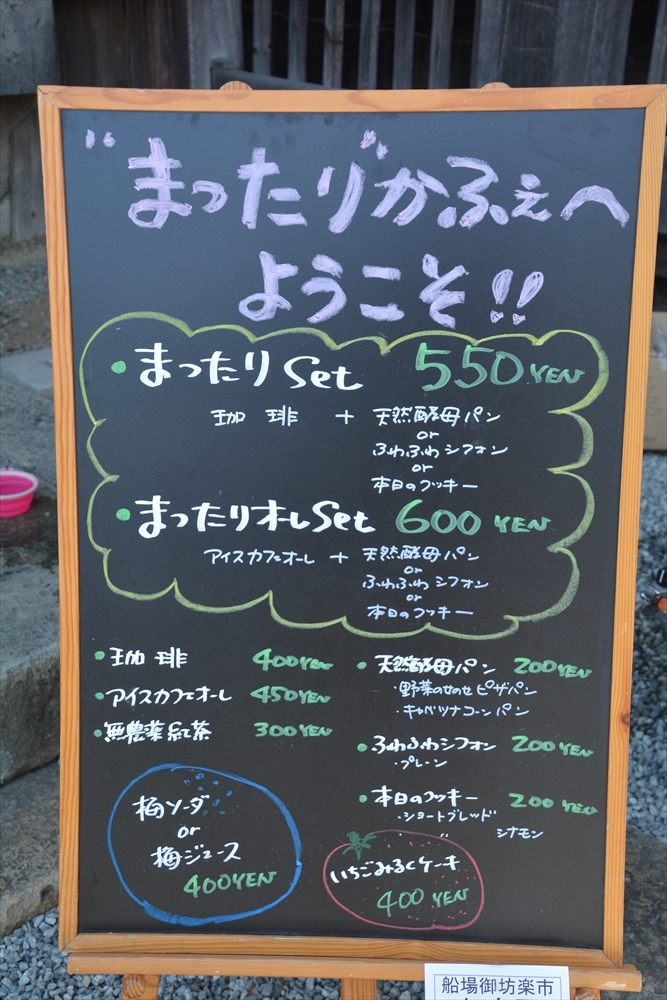 "まったり"かふぇへ
ようこそ!!
・まったりSet 550YEN
珈琲 + 天然酵母パン
or
ふわふわシフォン
or
本日のクッキー
・まったりオレSet 600YEN
アイスカフェオーレ + 天然酵母パン
or
ふわふわシフォン
or
本日のクッキー
・珈琲 400YEN
・アイスカフェオーレ 450YEN
・無農薬紅茶 300YEN
・天然酵母パン 200YEN
・野菜のせのせピザパン
・キャベツナコーンパン
・ふわふわシフォン 200YEN
・プレーン
・本日のクッキー 200YEN
・ショートブレッド
・ 〃 シナモン
梅ソーダ
or
梅ジュース
400YEN
いちごみるくケーキ
400YEN
船場御坊楽市